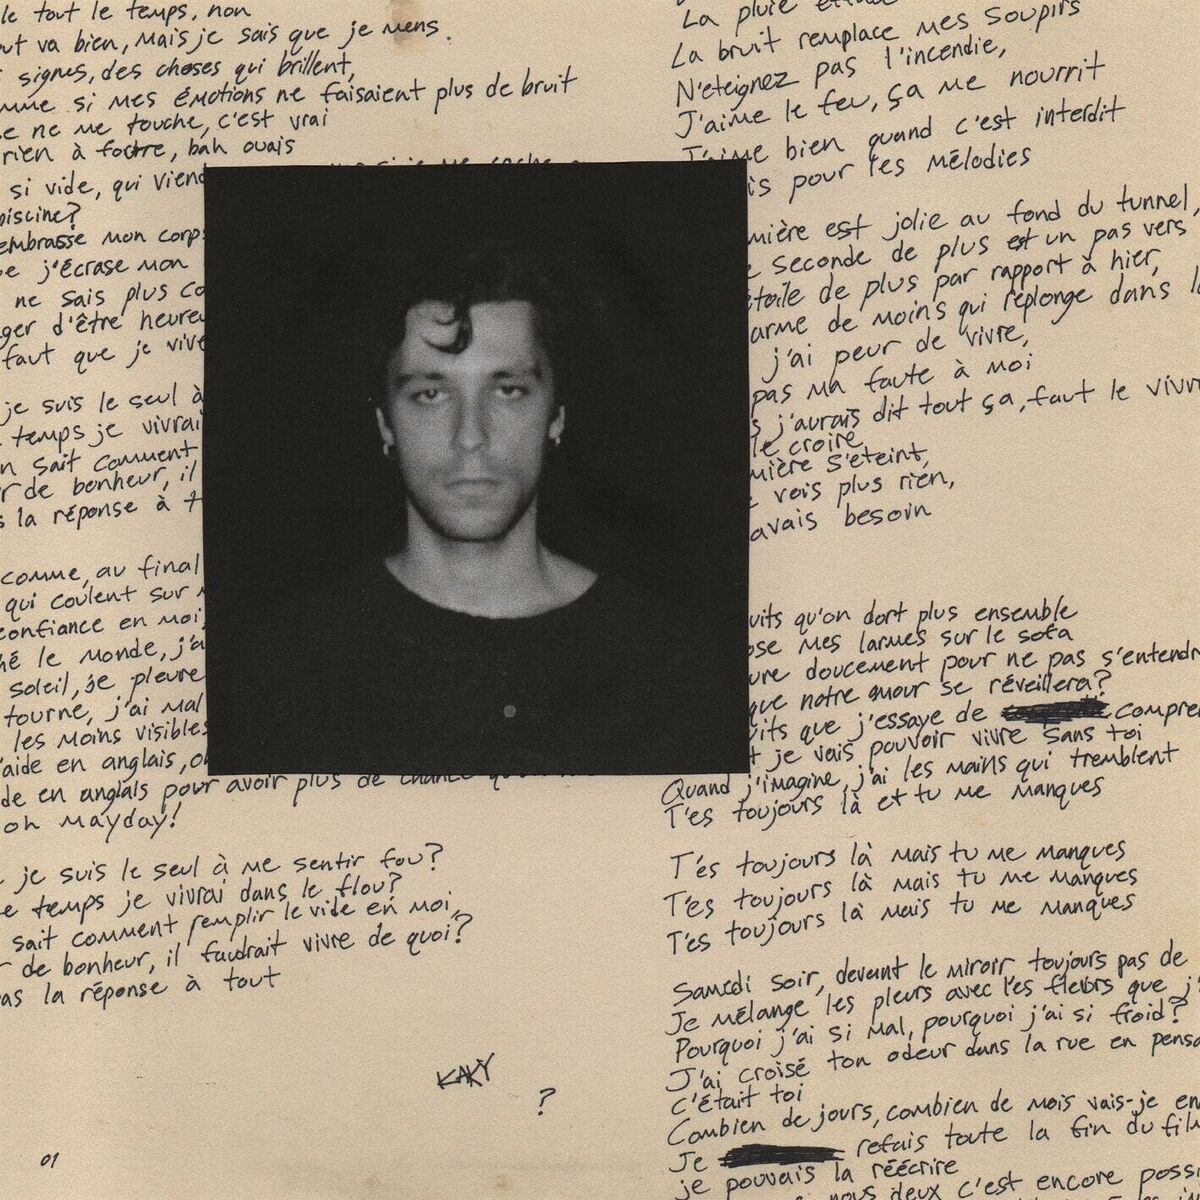 le tout le temps, non
va bien, mais je sais que je mens.
signes, des choses qui brillent,
si mes émotions ne faisaient plus de bruit
ne me touche, c'est vrai
rien à foutre, bah ouais
si vide, qui
piscine?
embrasse mon corps
j'écrase mon
ne sais plus
d'être
faut que je
je suis le seul à
temps je vivrai
sait comment
de bonheur, il
la réponse à
comme, au final
qui coulent sur
confiance en moi
le monde, j'ai
soleil, je pleure
tourne, j'ai mal
les moins visibles
l'aide en anglais,
de en anglais pour avoir plus de chance
oh Mayday!
je suis le seul à me sentir fou?
temps je vivrai dans le flou?
sait comment remplir le vide en moi,
de bonheur, il faudrait vivre de quoi?
pas la réponse à tout
KAKY
?
01
La pluie
La bruit remplace mes soupirs
N'eteignez pas l'incendie,
J'aime le feu, ça me nourrit
J'aime bien quand c'est interdit
pour les mélodies
est jolie au fond du tunnel,
seconde de plus est un pas vers
de plus par rapport à hier,
de moins qui replonge dans
j'ai peur de vivre,
pas ma faute à moi
j'aurais dit tout ça, faut le vivre
le croire
s'éteint,
vois plus rien,
avais besoin
qu'on dort plus ensemble
mes larmes sur le sofa
doucement pour ne pas s'entendre
que notre amour se réveillera?
que j'essaye de
je vais pouvoir vivre sans toi
Quand j'imagine, j'ai les mains qui tremblent
T'es toujours là et tu me manques
T'es toujours là mais tu me manques
T'es toujours là mais tu me manques
T'es toujours là mais tu me manques
Samedi soir, devant le miroir toujours pas de
Je mélange les pleurs avec les fleurs que
Pourquoi j'ai si mal, pourquoi j'ai si froid?
J'ai croisé ton odeur dans la rue en
C'était toi
Combien de jours, combien de mois vais-je
Je refais toute la fin du film
je pouvais la réécrire
nous deux c'est encore